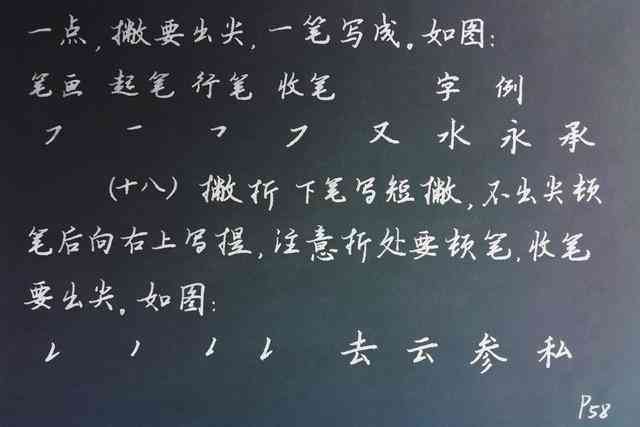 一点,撇要出尖,一笔写成。如图:
笔画 起笔 行笔 收笔 字 例
㇇ ㇐ ㇇ ㇇ 又 水 永 承
(十八) 撇折 下笔写短撇,不出尖顿
笔后向右上写提,注意折处要顿笔,收笔
要出尖。如图:
㇜ ㇒ ㇜ ㇜ 去 云 参 私
P58